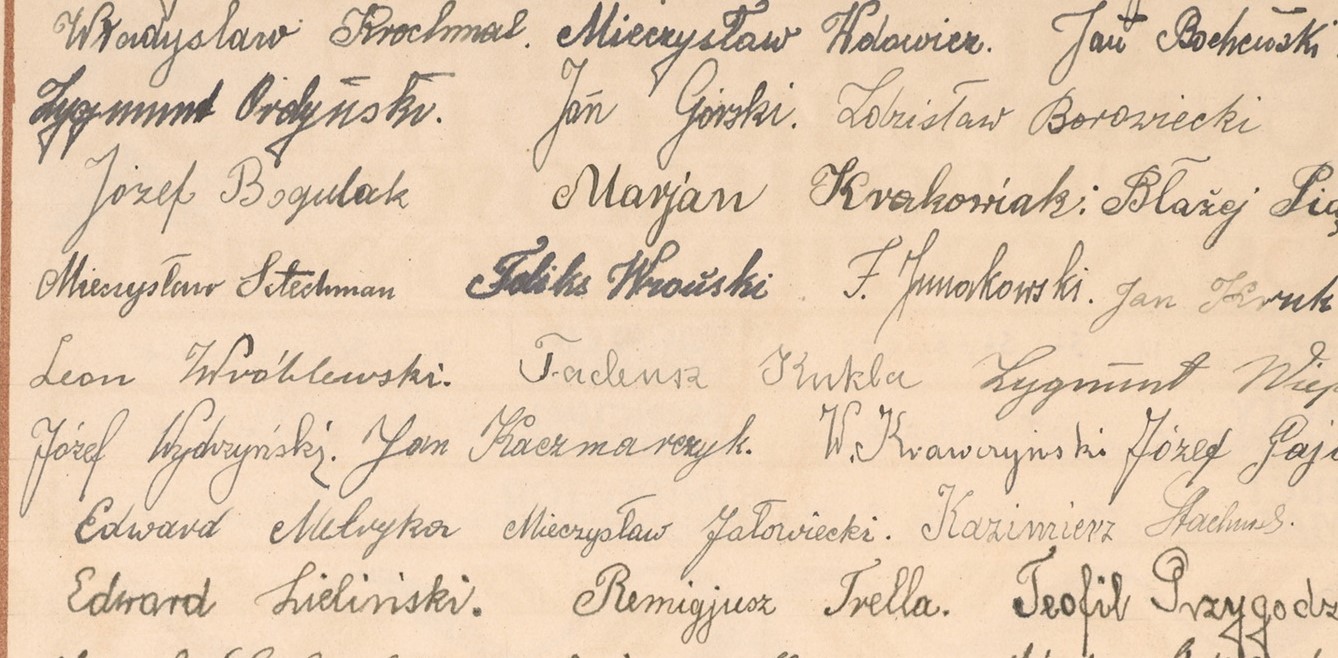 Władysław Krochmal. Mieczysław Wdowicz. Jan Bocheński
Zygmunt Ordyński. Jan Górski. Zdzisław Borowiecki
Józef Bogulak Marjan Krakowiak: Błażej
Mieczysław Stechman Feliks Wroński F. Junakowski. Jan Kruk
Leon Wróblewski. Tadeusz Kukla Zygmunt
Józef Wydrzyński. Jan Kaczmarczyk. W. Krawczyński Józef
Edward Metryka Mieczysław Jałowiecki. Kazimierz
Edward Zieliński. Remigjusz Trella. Teofil